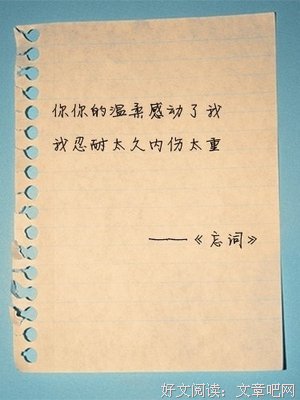 你你的温柔感动了我
我忍耐太久内伤太重
——《忘词》
好文阅读：文章吧网